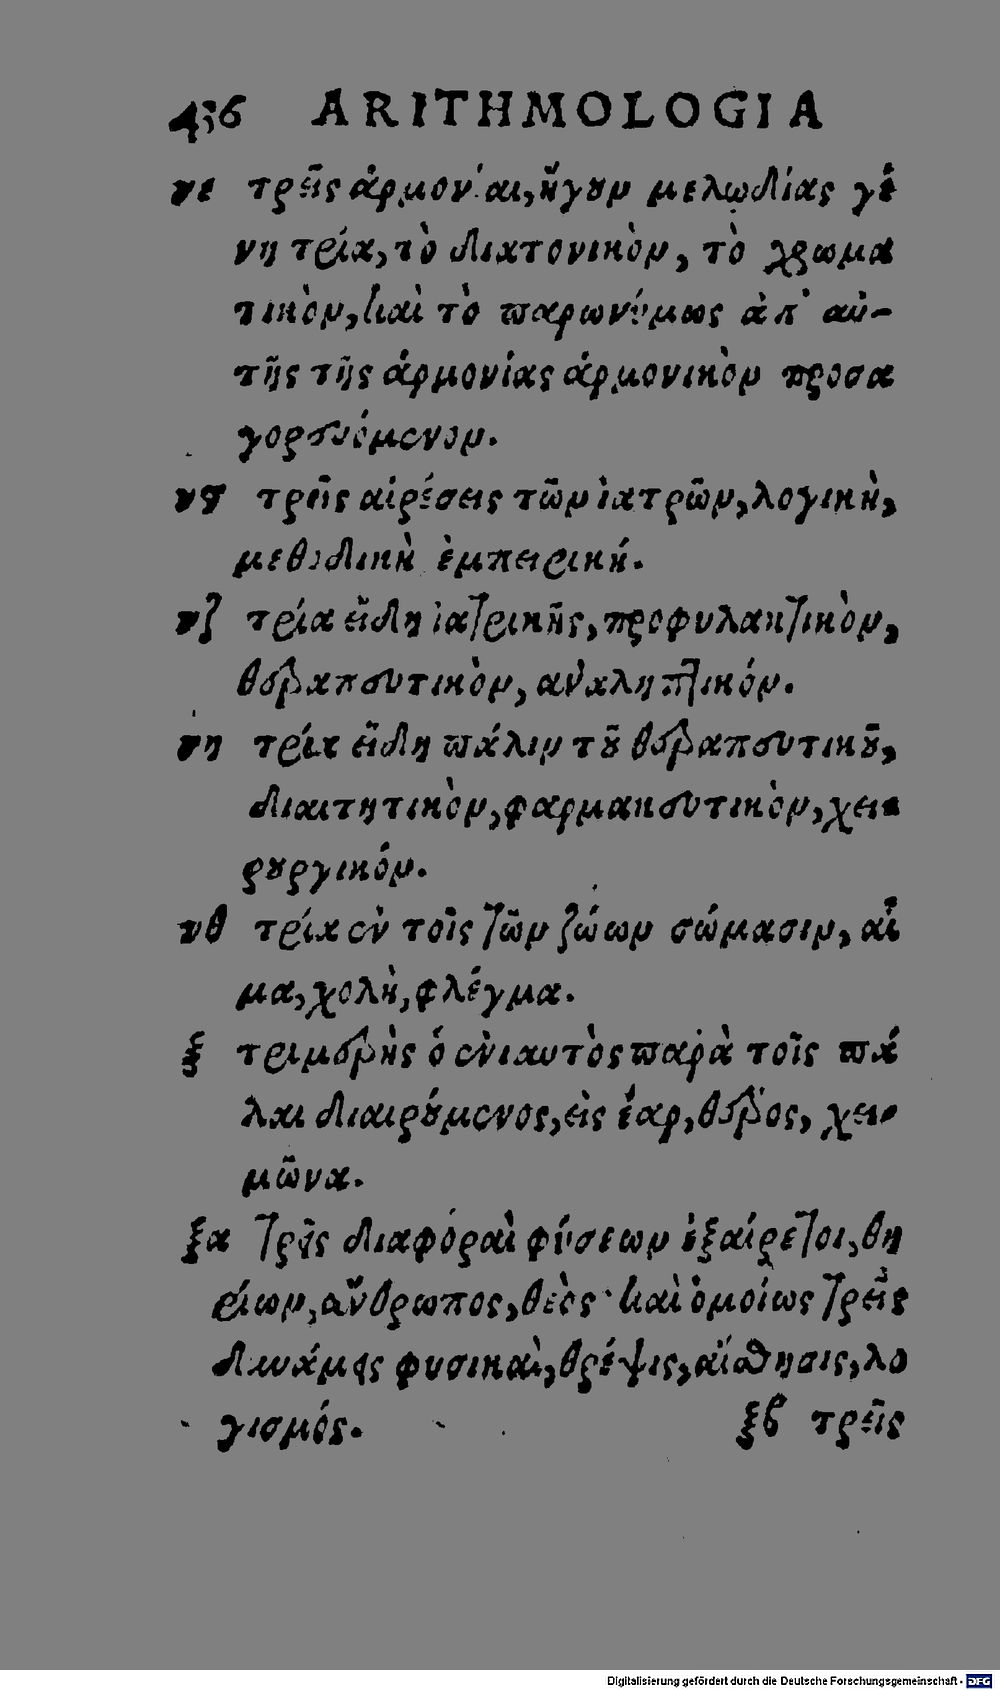 436 ARITHMOLOGIA
νε τρεῖς ἁρμονίαι, ἤγουν μελωδίας γέ
νη τρία, τὸ διατονικὸν, τὸ χρωμα
τικὸν, καὶ τὸ παρωνύμως ἀπ' αὐ-
τῆς τῆς ἁρμονίας ἁρμονικὸν προσα
γορευόμενον.
νϛ τρεῖς αἱρέσεις τῶν ἰατρῶν, λογικὴ,
μεθοδικὴ ἐμπειρική.
νζ τρία εἴδη ἰατρικῆς, προφυλακτικὸν,
θεραπευτικὸν, αναληπτικόν.
νη τρία εἴδη πάλιν τοῦ θεραπευτικοῦ,
διαιτητικὸν, φαρμακευτικὸν, χει-
ρουργικόν.
νθ τρία ἐν τοῖς τῶν ζώων σώμασιν, αἷ
μα, χολὴ, φλέγμα.
ξ τριμερὴς ὁ ἐνιαυτὸς παρὰ τοῖς πά
λαι διαιρούμενος, εἰς ἔαρ, θέρος, χει-
μῶνα.
ξα τρεῖς διαφοραὶ φύσεων ἐξαίρετοι, θη
ρίων, ἄνθρωπος, θεὸς· καὶ ὁμοίως τρεῖς
δυνάμεις φυσικαὶ, θρέψις, αἴσθησις, λο
γισμός. ξβ τρεῖς
Digitalisierung gefördert durch die Deutsche Forschungsgemeinschaft - DFG